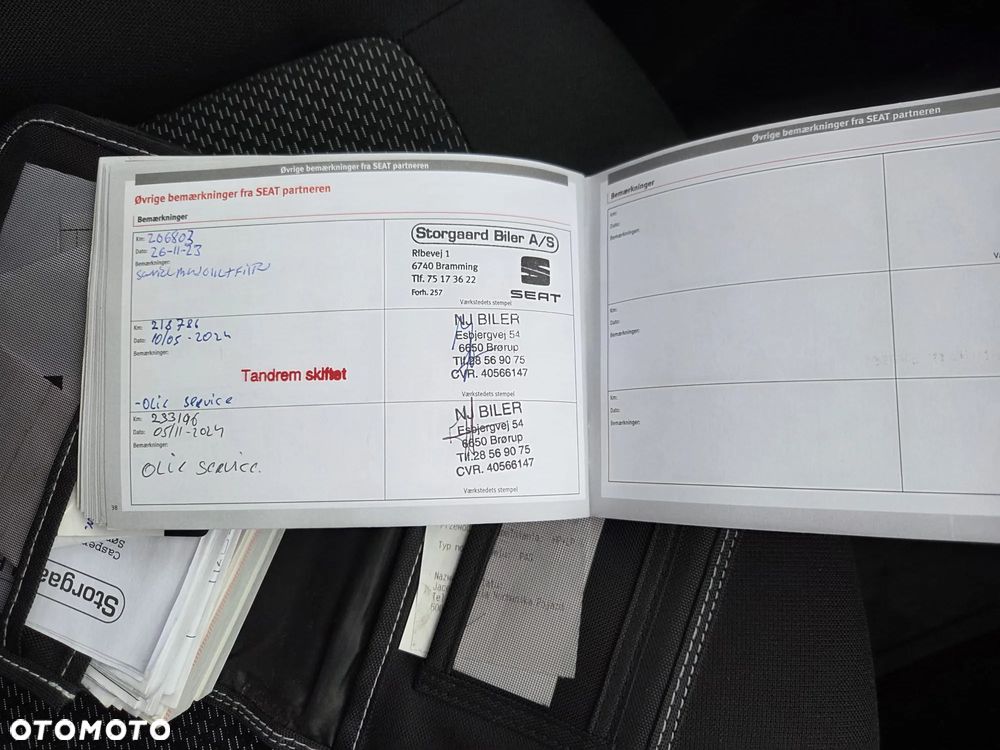 Øvrige bemærkninger fra SEAT partneren
Øvrige bemærkninger fra SEAT partneren
Bemærkninger
Km: 206803
Dato: 26-11-23
Bemærkninger:
Storgaard Biler A/S
Ribevej 1
6740 Bramming
Tlf. 75 17 36 22
Forh. 257
SEAT
Værkstedets stempel
Km: 218786
Dato: 10/05-2024
Bemærkninger:
Tandrem skiftet
-Olie service
NJ BILER
Esbjergvej 54
6650 Brørup
Tlf.28 56 90 75
CVR. 40566147
Værkstedets stempel
Km: 233196
Dato: 05/11-2024
Bemærkninger:
Olie service.
NJ BILER
Esbjergvej 54
6650 Brørup
Tlf.28 56 90 75
CVR. 40566147
Værkstedets stempel
38
Øvrige bemærkninger fra SEAT partneren
Bemærkninger
Km:
Dato:
Bemærkninger:
Km:
Dato:
Bemærkninger:
Km:
Dato:
Bemærkninger:
Casper
Storgaa
Typ
OTOMOTO